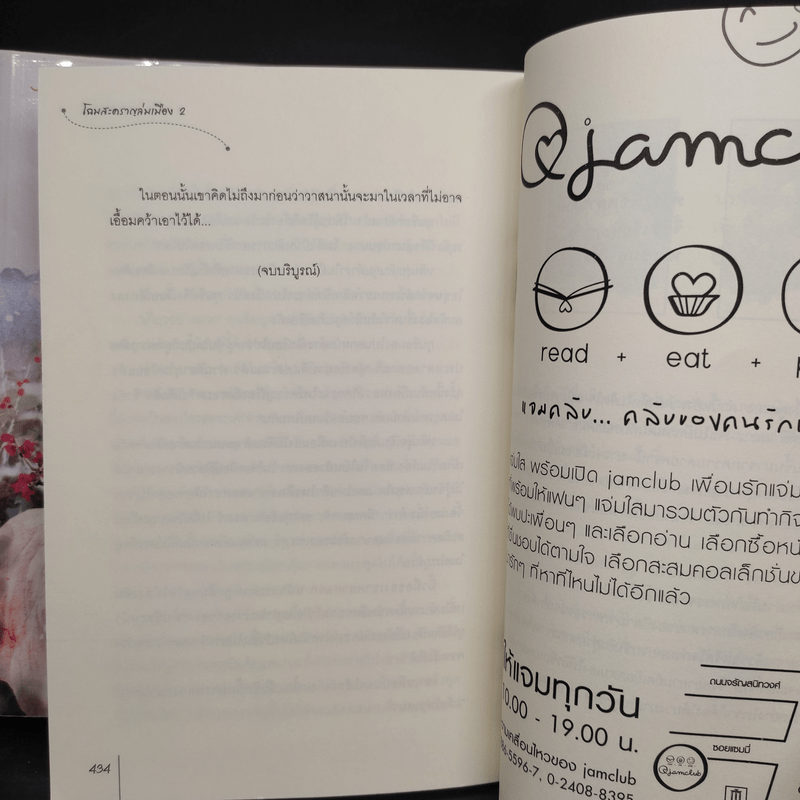 โฉมสะคราญล่มเมือง 2
ในตอนนั้นเขาคิดไม่ถึงมาก่อนว่าวาสนานั้นจะมาในเวลาที่ไม่อาจ
เอื้อมคว้าเอาไว้ได้...
(จบบริบูรณ์)
434
jamc
read + eat +
แจมคลับ... คลับของคนรัก
พร้อมเปิด jamclub เพื่อนรักแจ่ม
พร้อมให้แฟนๆ แจ่มใสมารวมตัวกันทำกิจ
และเลือกอ่าน เลือกซื้อหน
ได้ตามใจ เลือกสะสมคอลเล็กชั่น
ที่หาที่ไหนไม่ได้อีกแล้ว
ให้แจมทุกวัน
10.00 - 19.00 น.
ของ jamclub
5596-7, 0-2408-8395
ถนนจรัญสนิทวงศ์
ซอยแซมมี่
jamclub